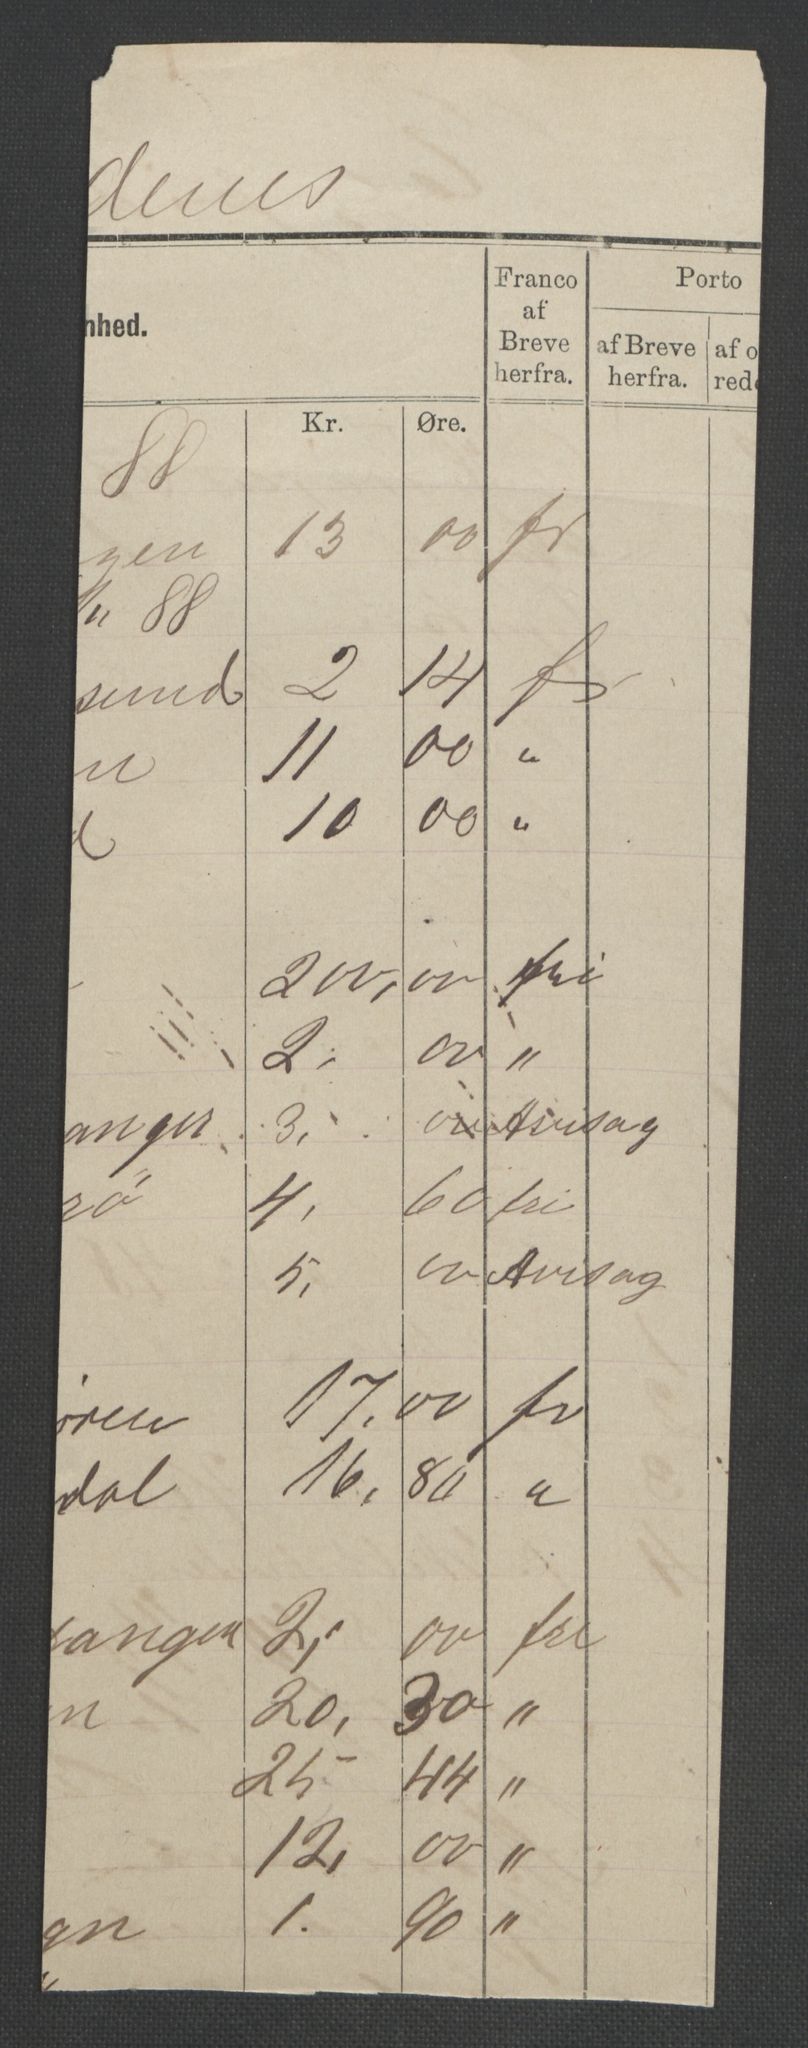 denes
nhed.
Franco af Breve herfra.
Porto
af Breve herfra.
af o
rede
Kr. Øre.
88
gen 13 00 fr
88
sund 2 14 fr
n 11 00 "
d 10 00 "
200, 00 fri
2, 00 "
anger 3, 00 Avisag
rö 4, 60 fri
5, 00 Avisag
ören 17, 00 fr
dal 16, 80 "
vanger 2, 00 fri
n 20, 30 "
25 44 "
12, 00 "
gn 1. 90 "